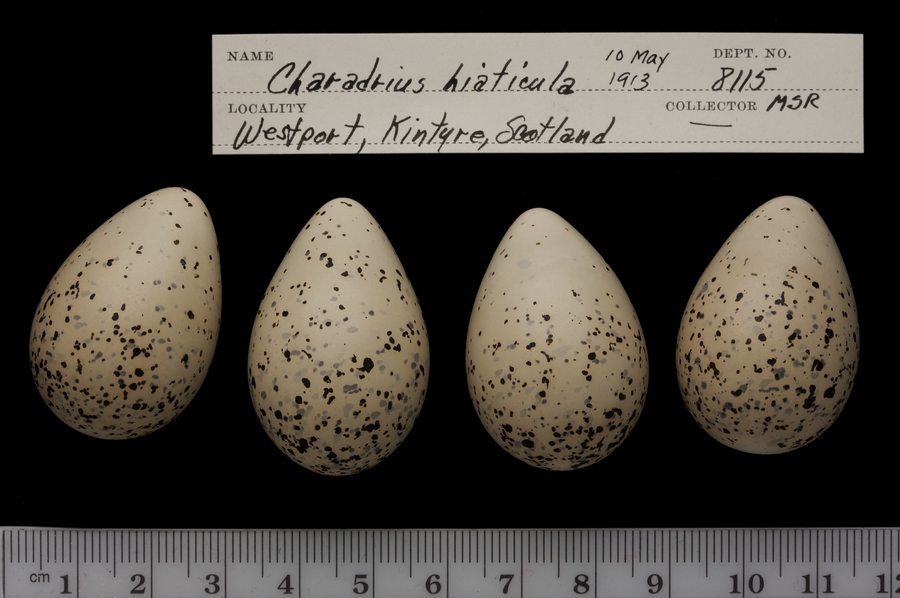 NAME Charadrius hiaticula 10 May 1913 DEPT. NO. 8115
LOCALITY Westport, Kintyre, Scotland COLLECTOR MSR
cm 1 2 3 4 5 6 7 8 9 10 11 12